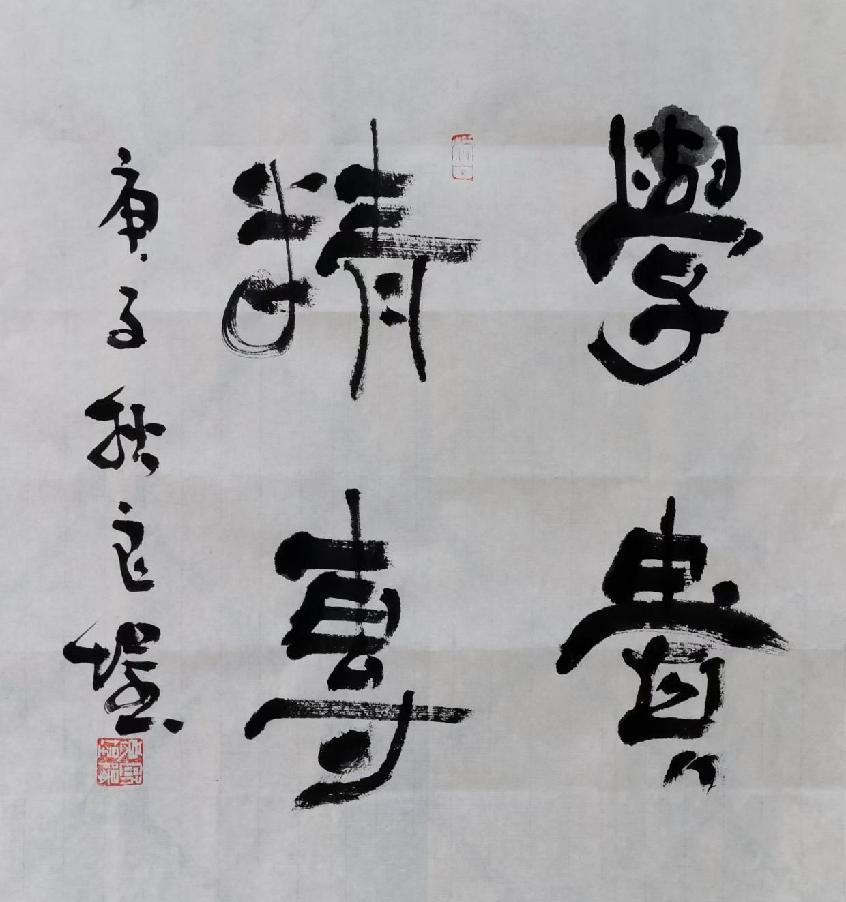 學貴
精專
庚子秋良